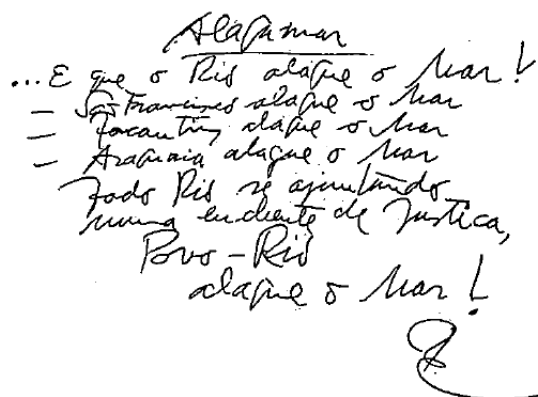 Alagamar
...E que o Rio alague o Mar!
— São Francisco alague o Mar
— Tocantins alague o Mar
— Araguaia alague o Mar
Todo Rio se ajuntando
numa enchente de Justiça,
Povo-Rio
alague o Mar!